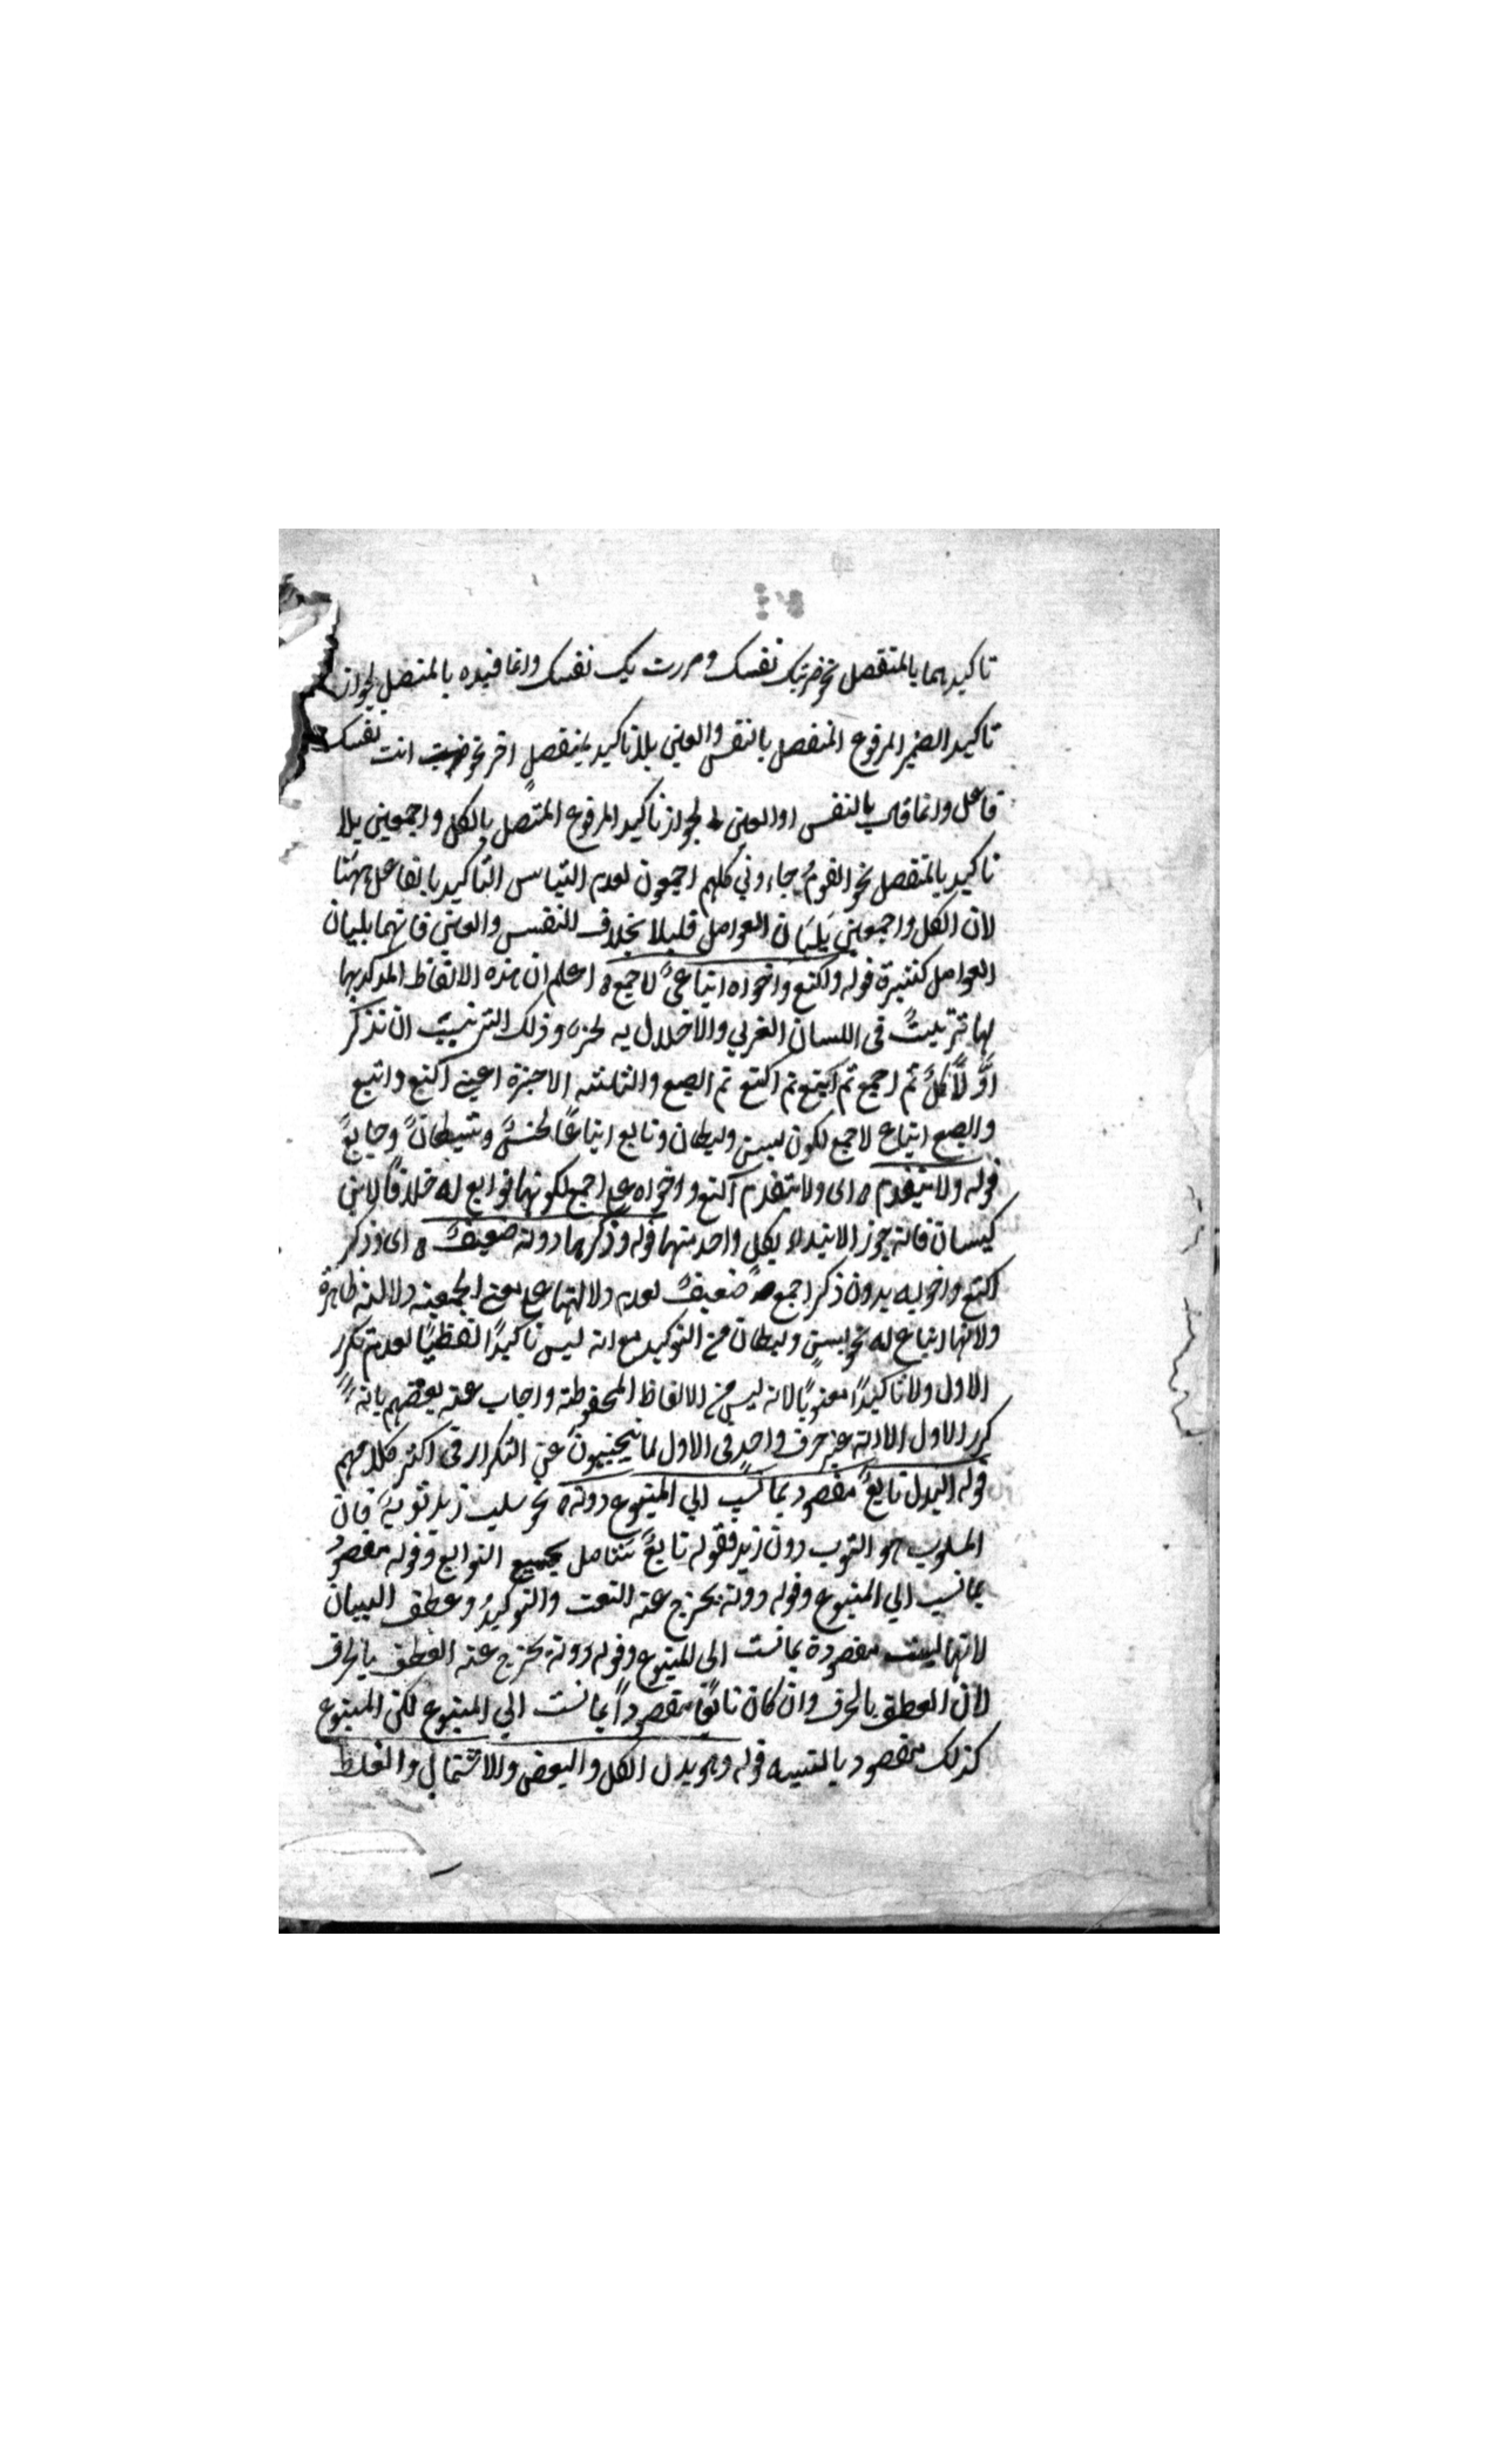 تاكيدهما بالمنفصل نحو ضربتك نفسك ومررت بك نفسك وانما قيده بالمتصل لجواز
تاكيد الضمير المرفوع المنفصل بالنفس والعين بلا تاكيد بمنفصل اخر نحو ضربت انت نفسك
فاعل وانما قال بالنفس او العين لجواز تاكيد المرفوع المتصل بالكل واجمعين بلا
تاكيد بالمنفصل نحو القوم جاءوني كلهم اجمعون لعدم التباس التاكيد بالفاعل ههنا
لان الكل واجمعين يليان العوامل قليلا بخلاف النفس والعين فانهما يليان
العوامل كثيرة قوله واكتع واخواه اتباع لاجمع اعلم ان هذه الالفاظ المؤكد بها
لها ترتيب فى اللسان العربي والاخلال به لحن وذلك الترتيب ان تذكر
اوّلًا كل ثم اجمع ثم اكتع ثم ابصع والثلثة الاخيرة اعني اكتع واتبع
وابصع اتباع لاجمع لكون بسن وليطان ونايع اتباعًا لحسن وشيطان وجايع
قوله ولا يتقدم اى ولا يتقدم اكتع واخواه على اجمع لكونها توابع له خلافا لابن
كيسان فانه جوز الابتداء بكل واحد منها قوله وذكرها دونه ضعيف اى وذكر
اكتع واخويه بدون ذكر اجمع ضعيف لعدم دلالتها على معنى الجمعية دلالة ظاهرة
ولانها اتباع له نحو بسن وليطان من التوكيد مع انه ليس تاكيدًا لفظيًا لعدم تكرر
الاول ولا تاكيدًا معنويًا لانه ليس من الالفاظ المحفوظة واجاب عنه بعضهم بانه
كرر الاول الا انه غير حرف واحد فى الاول لما يجتنبون عن التكرار فى اكثر كلامهم
قوله البدل تابع مقصود بما نسب الي المتبوع دونه نحو سلب زيد ثوبه فان
المسلوب هو الثوب دون زيد فقوله تابع شامل لجميع التوابع وقوله مقصود
بما نسب الي المتبوع وقوله دونه يخرج عنه النعت والتوكيد وعطف البيان
لانها ليست مقصودة بما نسب الى المتبوع وقوله دونه يخرج عنه العطف بالحرف
لان العطف بالحرف وان كان تابعًا مقصودًا بما نسب الي المتبوع لكن المتبوع
كذلك مقصود بالنسبه قوله وهو بدل الكل والبعض والاشتمال والغلط